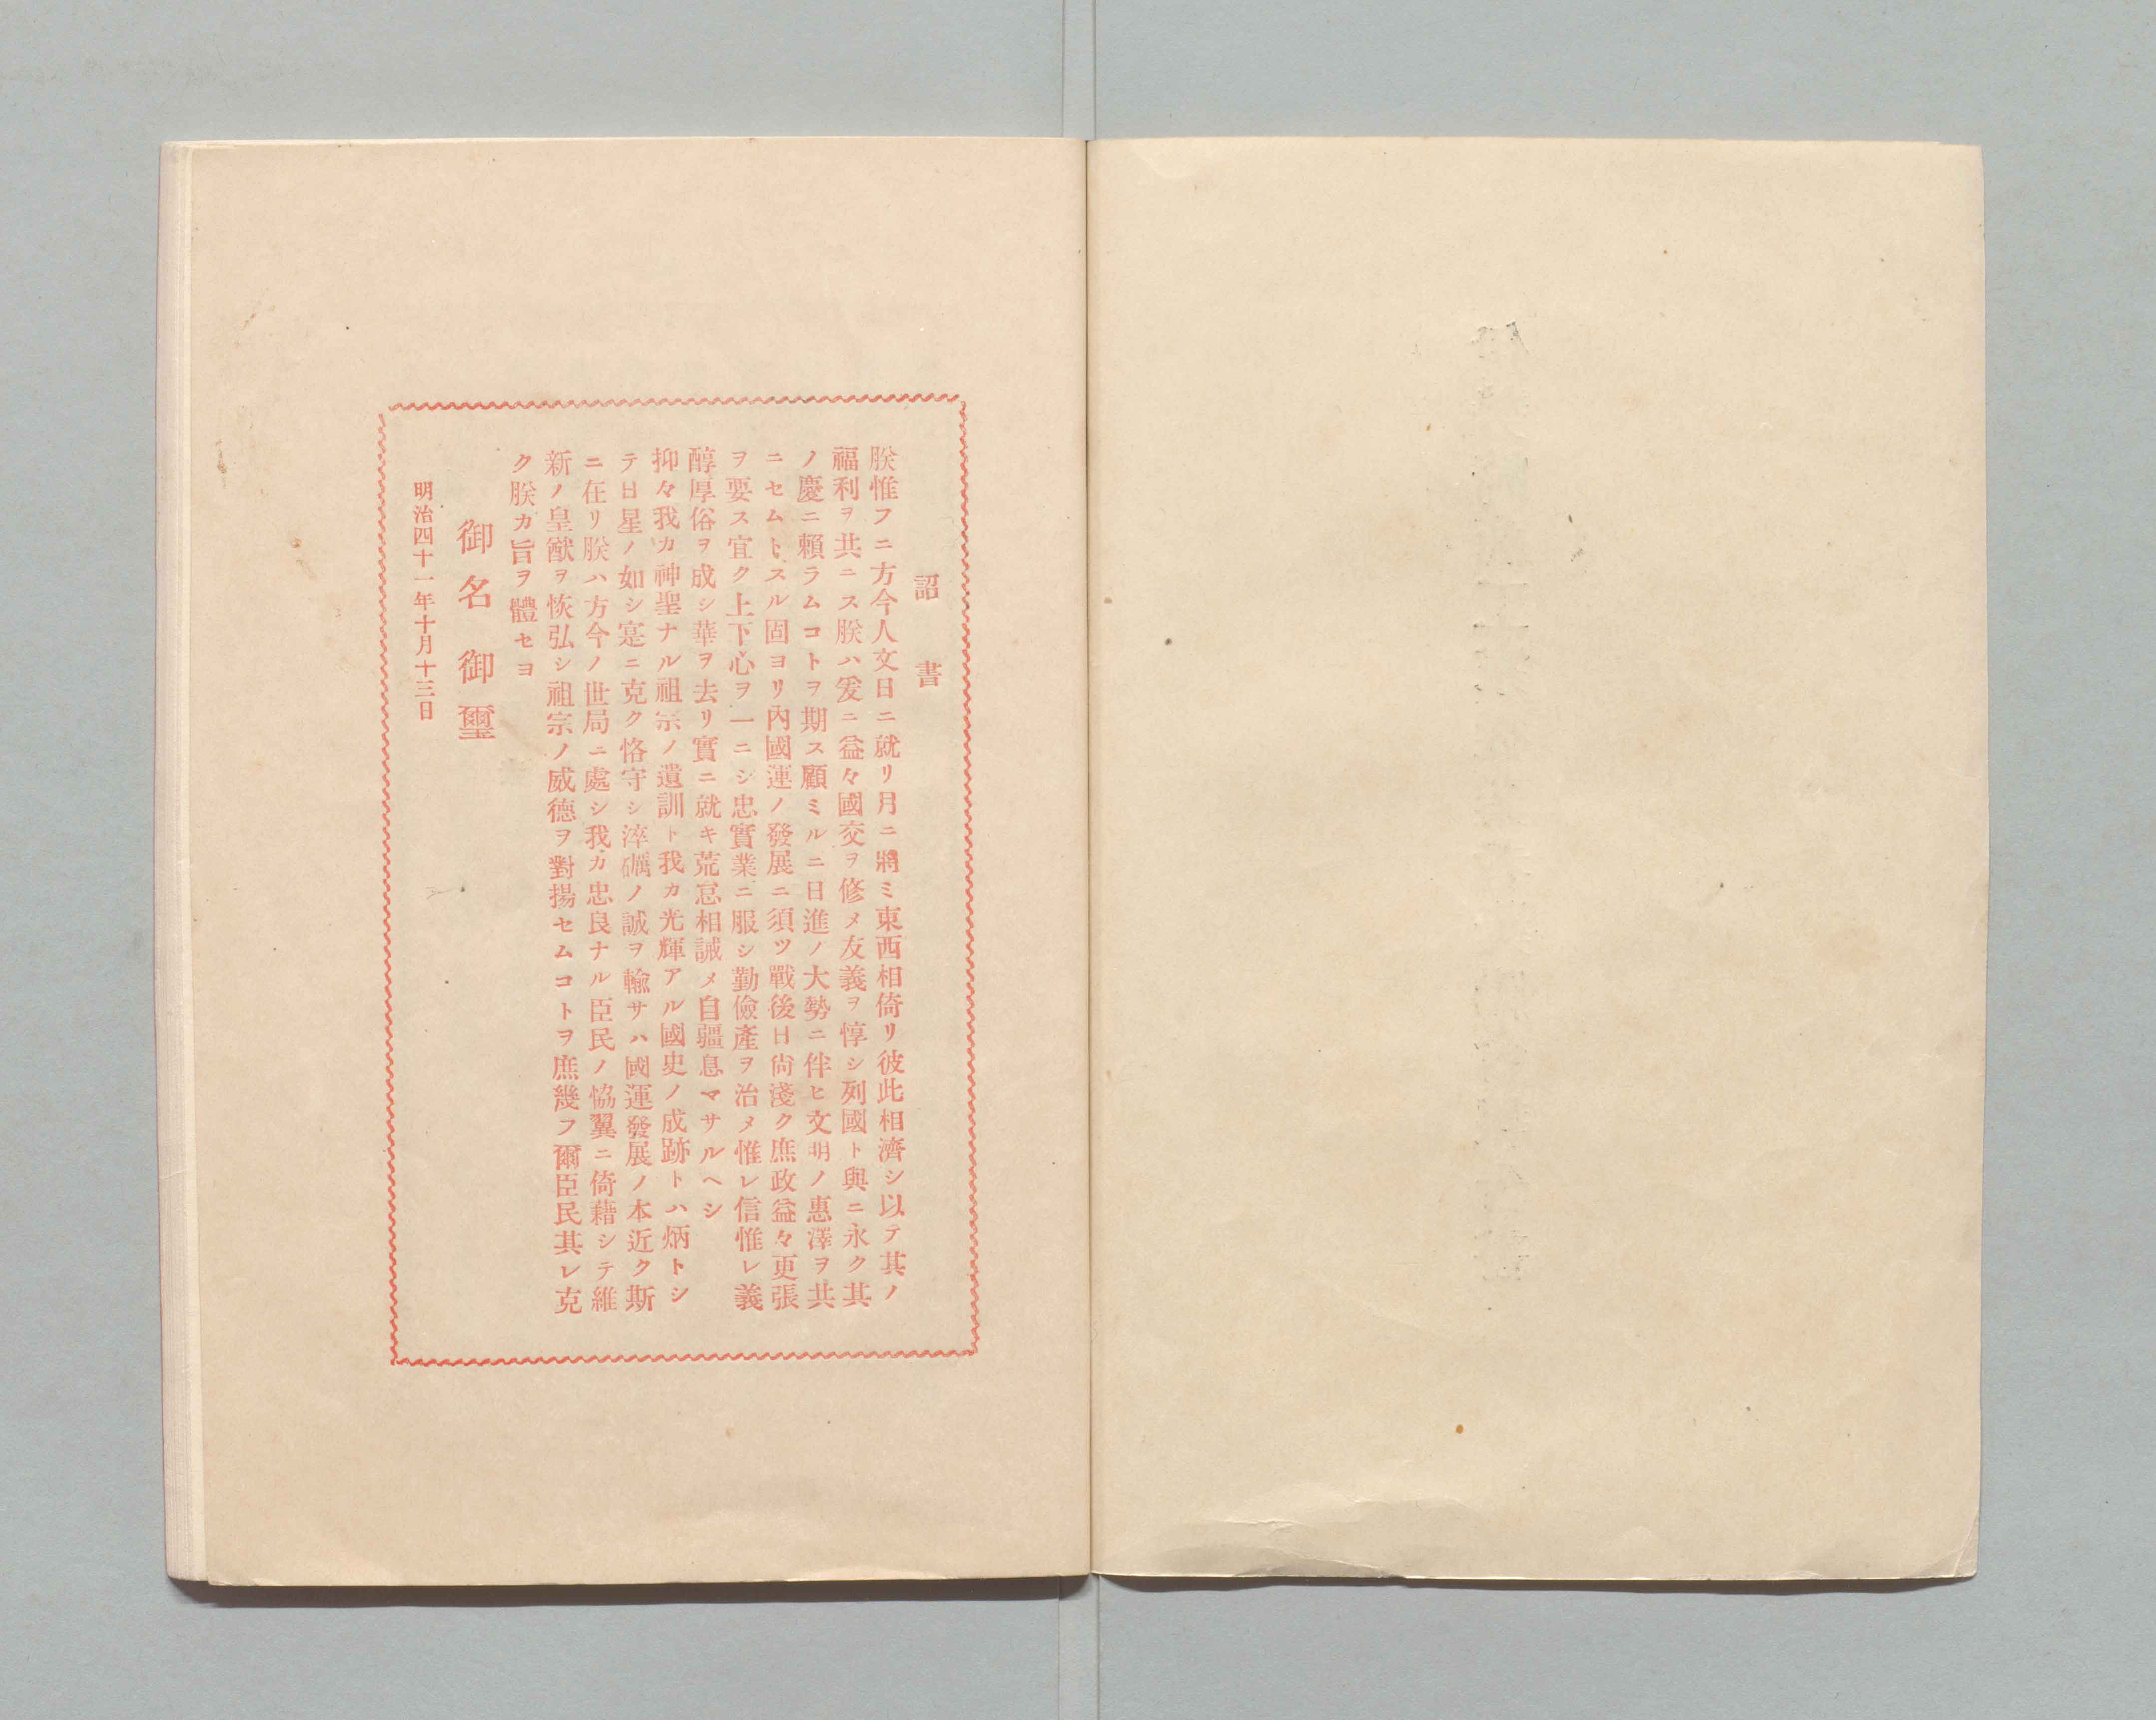 詔書
朕惟フニ方今人文日ニ就リ月ニ將ミ東西相倚リ彼此相濟シ以テ其ノ
福利ヲ共ニス朕ハ爰ニ益々國交ヲ修メ友義ヲ惇シ列國ト與ニ永ク其
ノ慶ニ賴ラムコトヲ期ス顧ミルニ日進ノ大勢ニ伴ヒ文明ノ惠澤ヲ共
ニセムトスル固ヨリ內國運ノ發展ニ須ツ戰後日尙淺ク庶政益々更張
ヲ要ス宜ク上下心ヲ一ニシ忠實業ニ服シ勤儉產ヲ治メ惟レ信惟レ義
醇厚俗ヲ成シ華ヲ去リ實ニ就キ荒怠相誡メ自彊息マサルヘシ
抑々我カ神聖ナル祖宗ノ遺訓ト我カ光輝アル國史ノ成跡トハ炳トシ
テ日星ノ如シ寔ニ克ク恪守シ淬礪ノ誠ヲ輸サハ國運發展ノ本近ク斯
ニ在リ朕ハ方今ノ世局ニ處シ我カ忠良ナル臣民ノ協翼ニ倚藉シテ維
新ノ皇猷ヲ恢弘シ祖宗ノ威德ヲ對揚セムコトヲ庶幾フ爾臣民其レ克
ク朕カ旨ヲ體セヨ
御名御璽
明治四十一年十月十三日